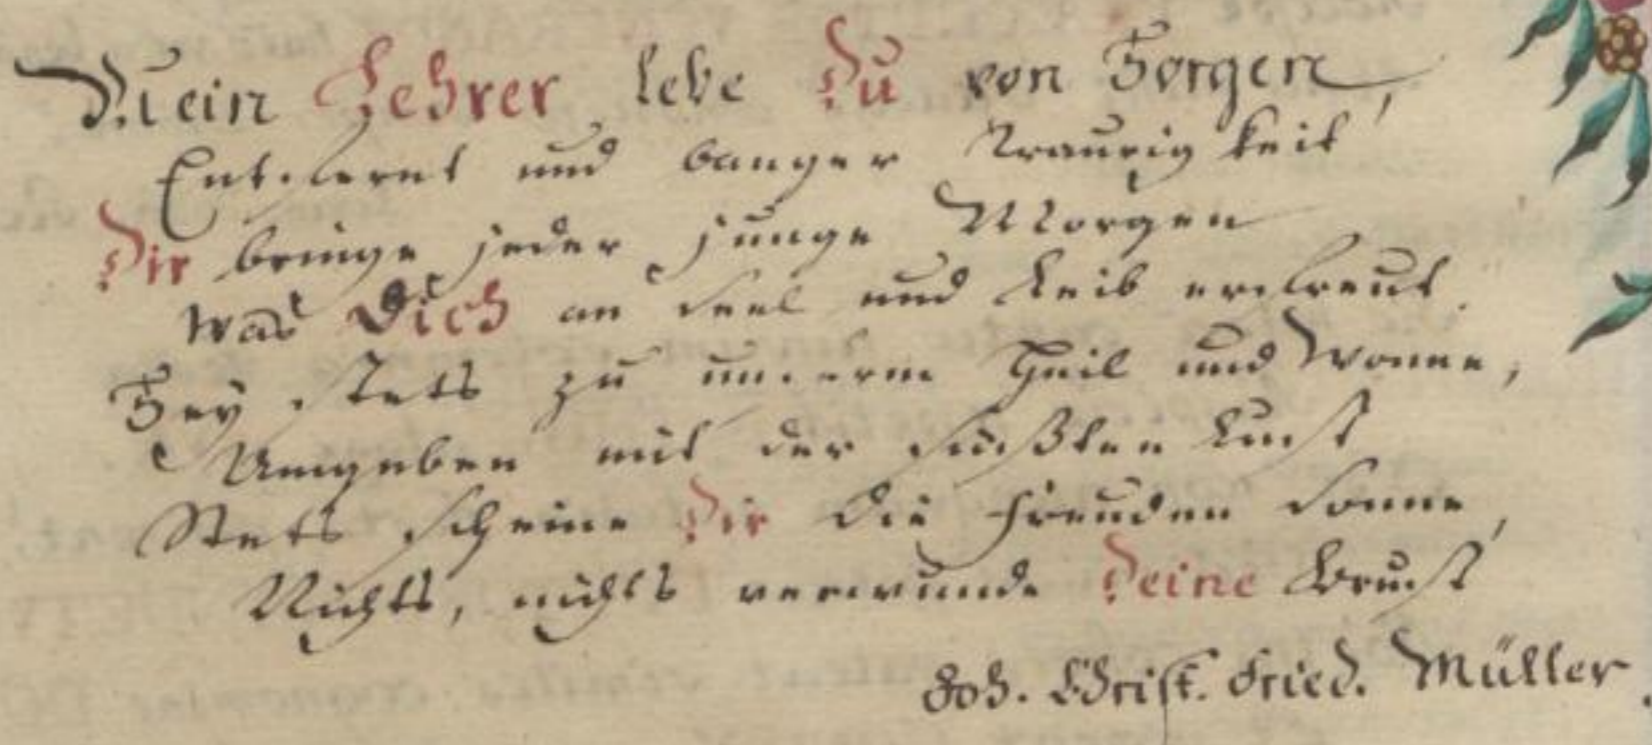 Mein Lehrer lebe Du von Sorgen,
Entfernt und banger Traurigkeit
Dir bringe jeder junge Morgen
Was Dich an Seel und Leib erfreut.
Sey stets zu unserm Heil und Wonne,
Umgeben mit der süßten Lust
Stets scheine Dir die Freuden Sonne,
Nichts, nichts verwunde Deine Brust
Joh. Christ. Fried. Müller.